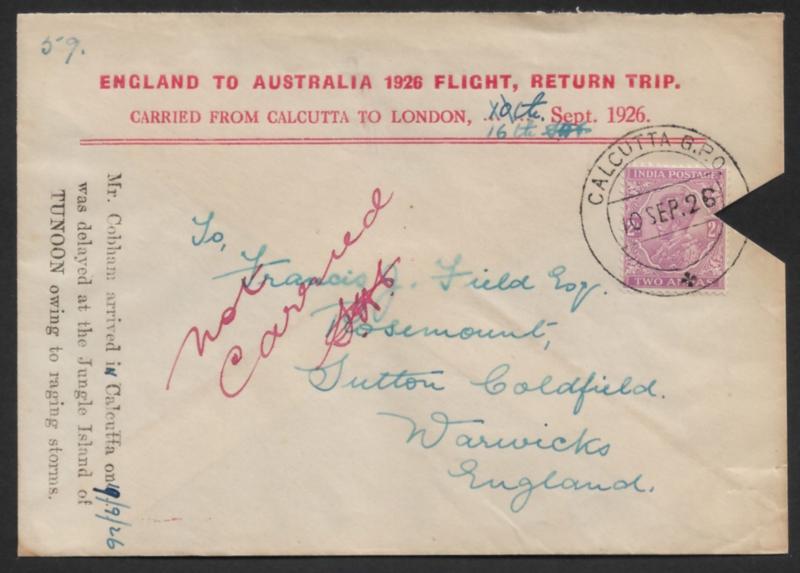 59.
ENGLAND TO AUSTRALIA 1926 FLIGHT, RETURN TRIP.
CARRIED FROM CALCUTTA TO LONDON, 10th. Sept. 1926.
16th
CALCUTTA G.P.O.
10 SEP. 26
INDIA POSTAGE
2 2
TWO ANNAS
To,
Francis J. Field Esq.
Rosemount,
Sutton Coldfield.
Warwicks
England.
not
carried
Mr. Cobham arrived in Calcutta on 19/9/26
was delayed at the Jungle Island of
TUNOON owing to raging storms.